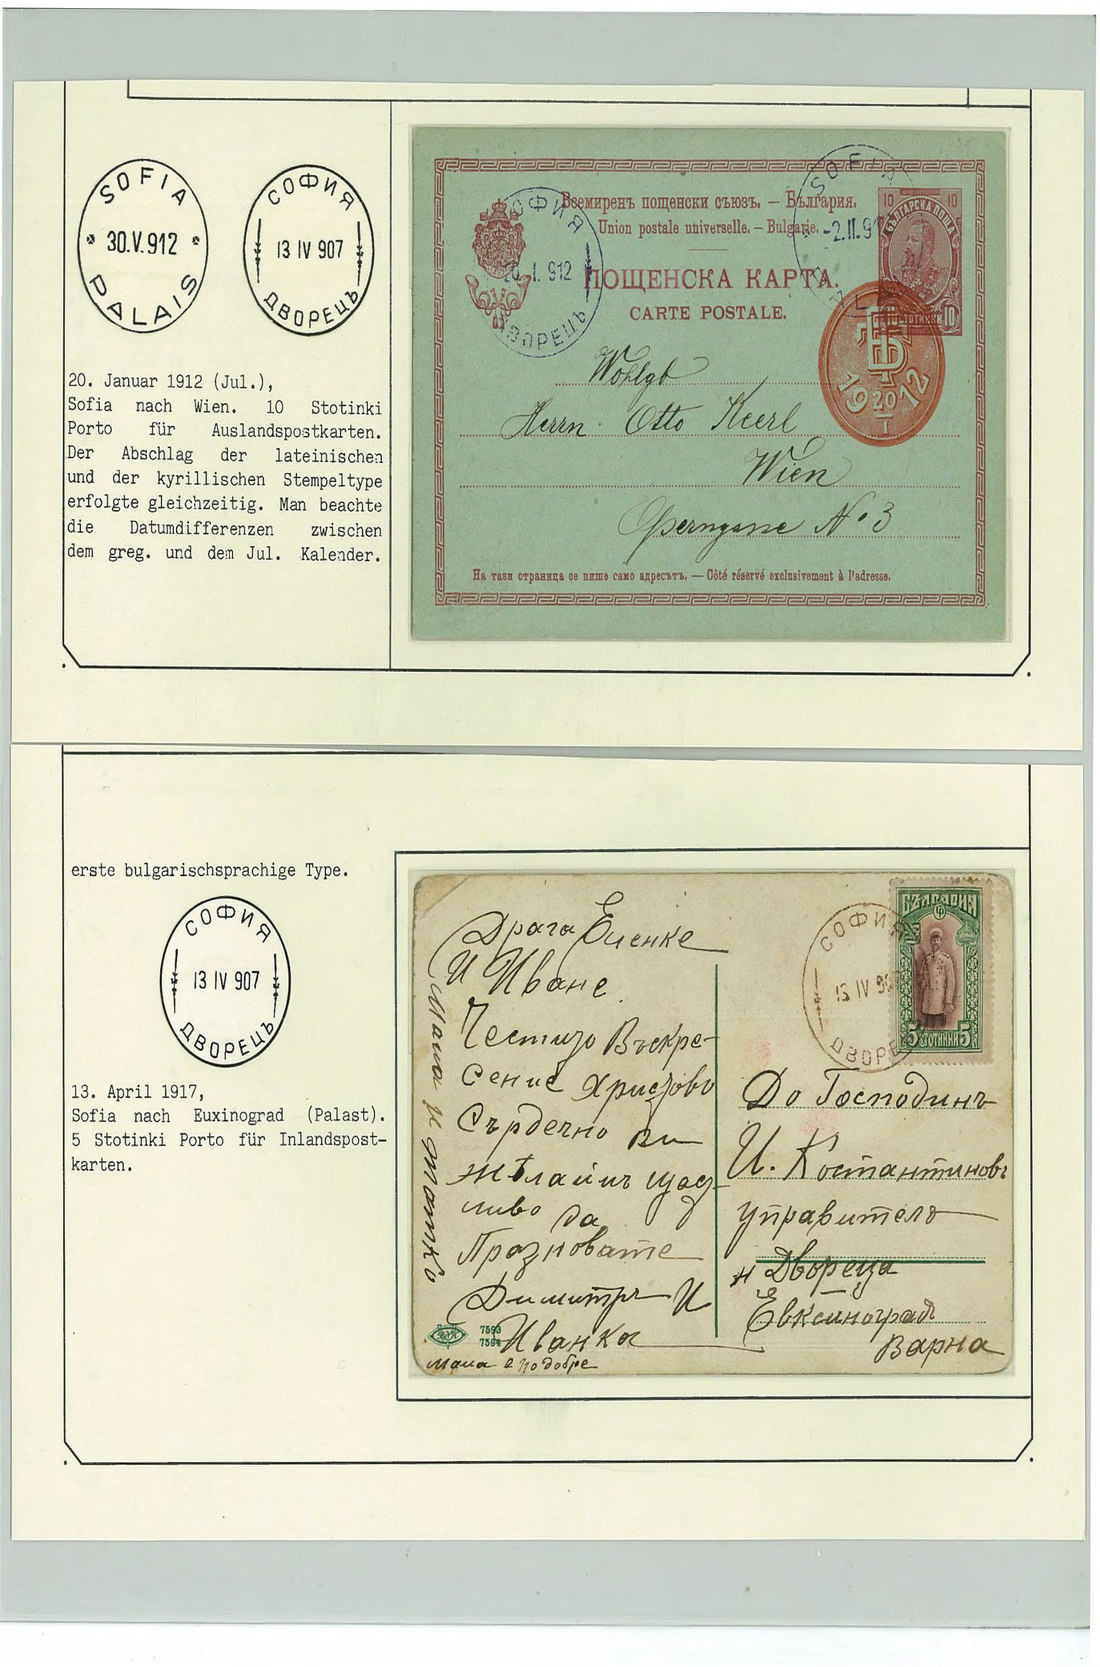 SOFIA
* 30.V.912 *
PALAIS
СОФИЯ
13 IV 907
ДВОРЕЦЪ
20. Januar 1912 (Jul.),
Sofia nach Wien. 10 Stotinki
Porto für Auslandspostkarten.
Der Abschlag der lateinischen
und der kyrillischen Stempeltype
erfolgte gleichzeitig. Man beachte
die Datumdifferenzen zwischen
dem greg. und dem Jul. Kalender.
СОФИЯ
I. 912
ДВОРЕЦЪ
SOFIA
-2.II.91
Всемиренъ пощенски съюзъ. — България.
Union postale universelle. — Bulgarie.
ПОЩЕНСКА КАРТА.
CARTE POSTALE.
10 10
БЪЛГАРСКА ПОЩА
СТОТИНКИ 10
1912
20
I
Wohlgb
Herrn Otto Keerl
Wien
Operngasse No 3
На тази страница се пише само адресътъ. — Côté réservé exclusivement à l'adresse.
erste bulgarischsprachige Type.
СОФИЯ
13 IV 907
ДВОРЕЦЪ
13. April 1917,
Sofia nach Euxinograd (Palast).
5 Stotinki Porto für Inlandspost-
karten.
Драга Еленке
И Иване
Честито Въскре-
сение Христово
Сърдечно ви
желаимъ щас-
ливо да
Празновате
Димитръ И
Иванка
мама е по добре
Мама и татко
7593
7594
СОФИЯ
13 IV 907
ДВОРЕ
БЪЛГАРИЯ
5 СТОТИНКИ 5
До Господинъ
И. Костантиновъ
управителъ
н Двореца
Евксиноградъ
Варна